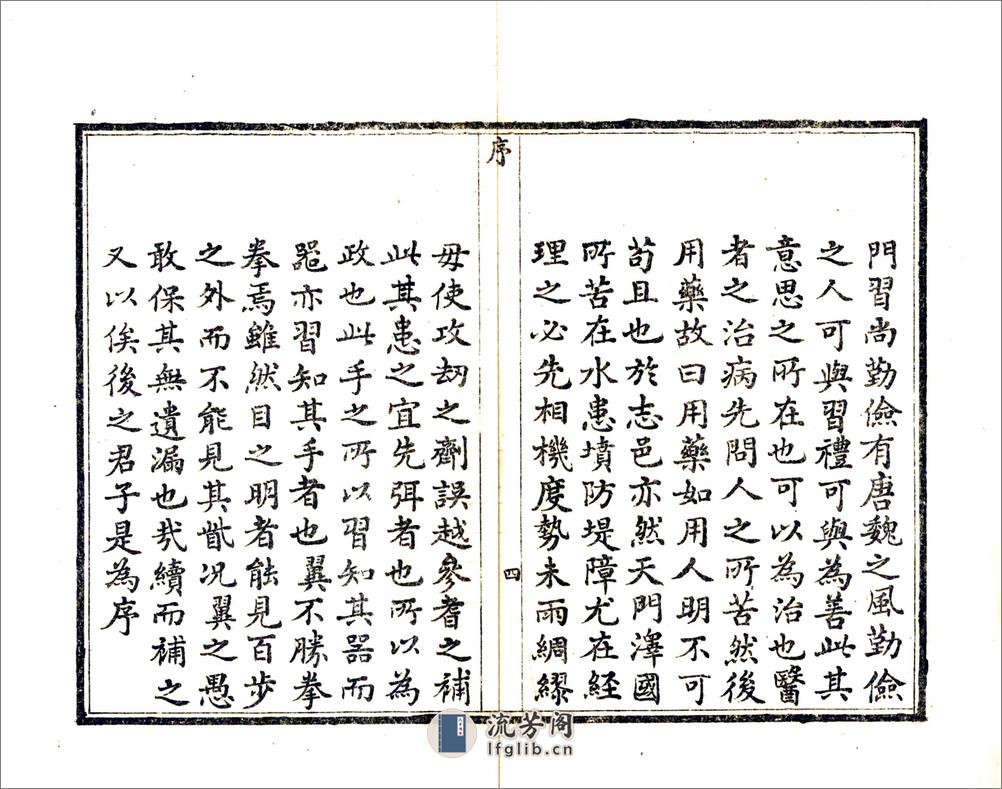 門習尚勤儉有唐魏之風勤儉
之人可與習禮可與為善此其
意思之所在也可以為治也醫
者之治病先問人之所苦然後
用藥故曰用藥如用人明不可
苟且也於志邑亦然天門澤國
所苦在水患墳防堤障尤在経
理之必先相機度勢未雨綢繆
序
四
毋使攻刼之劑誤越參耆之補
此其患之宜先弭者也所以為
政也此手之所以習知其器而
噐亦習知其手者也翼不勝拳
拳焉雖然目之明者能見百步
之外而不能見其眥况翼之愚
敢保其無遺漏也㢤續而補之
又以俟後之君子是為序
流芳阁
lfglib.cn